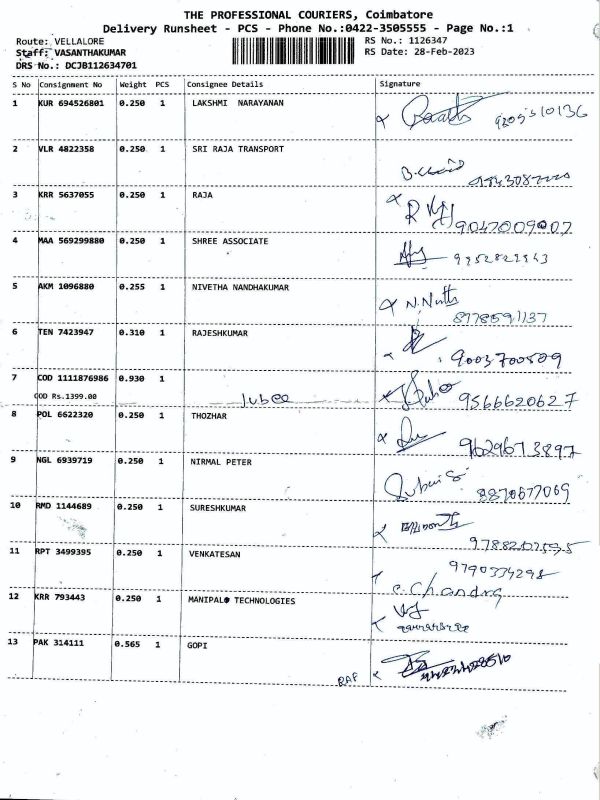 THE PROFESSIONAL COURIERS, Coimbatore
Delivery Runsheet - PCS - Phone No.:0422-3505555 - Page No.:1
Route: VELLALORE
RS No.: 1126347
Staff: VASANTHAKUMAR
RS Date: 28-Feb-2023
DRS No.: DCJB112634701
S No Consignment No Weight PCS Consignee Details Signature
1 KUR 694526801 0.250 1 LAKSHMI NARAYANAN
2 VLR 4822358 0.250 1 SRI RAJA TRANSPORT
3 KRR 5637055 0.250 1 RAJA
9047009007
4 MAA 569299880 0.250 1 SHREE ASSOCIATE
5 AKM 1096880 0.255 1 NIVETHA NANDHAKUMAR
8778591137
6 TEN 7423947 0.310 1 RAJESHKUMAR
9003700509
7 COD 1111876986 0.930 1
COD Rs.1399.00 9566620627
8 POL 6622320 0.250 1 THOZHAR
9629673897
9 NGL 6939719 0.250 1 NIRMAL PETER
8870677069
10 RMD 1144689 0.250 1 SURESHKUMAR
11 RPT 3499395 0.250 1 VENKATESAN
9790334298
12 KRR 793443 0.250 1 MANIPALO TECHNOLOGIES
13 PAK 314111 0.565 1 GOPI